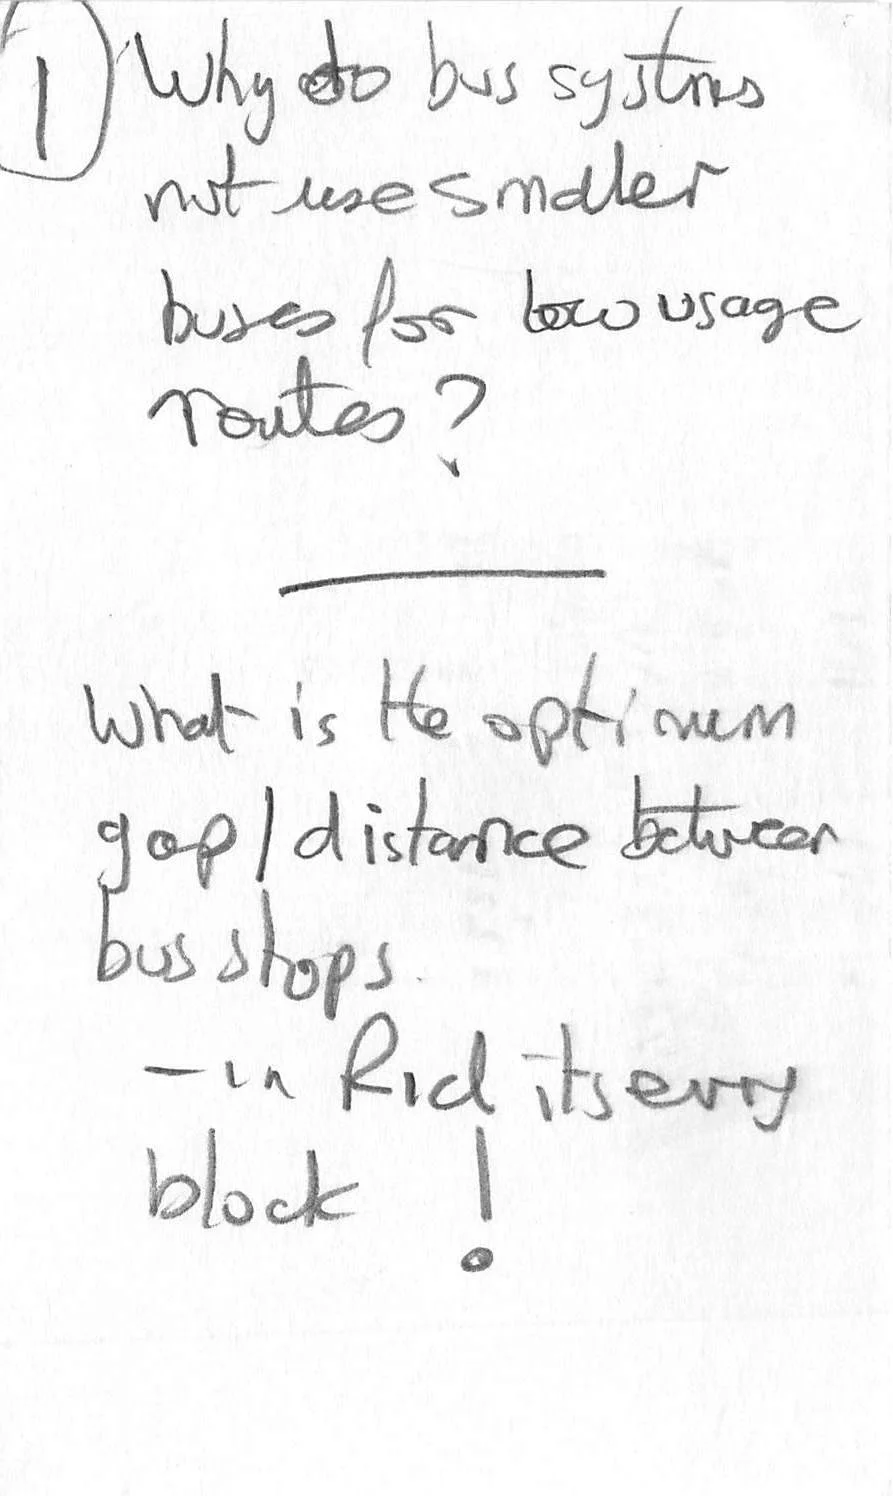 1 Why do bus systems
not use smaller
buses for low usage
routes?
What is the optimum
gap/distance between
bus stops.
- in Rid its every
block !